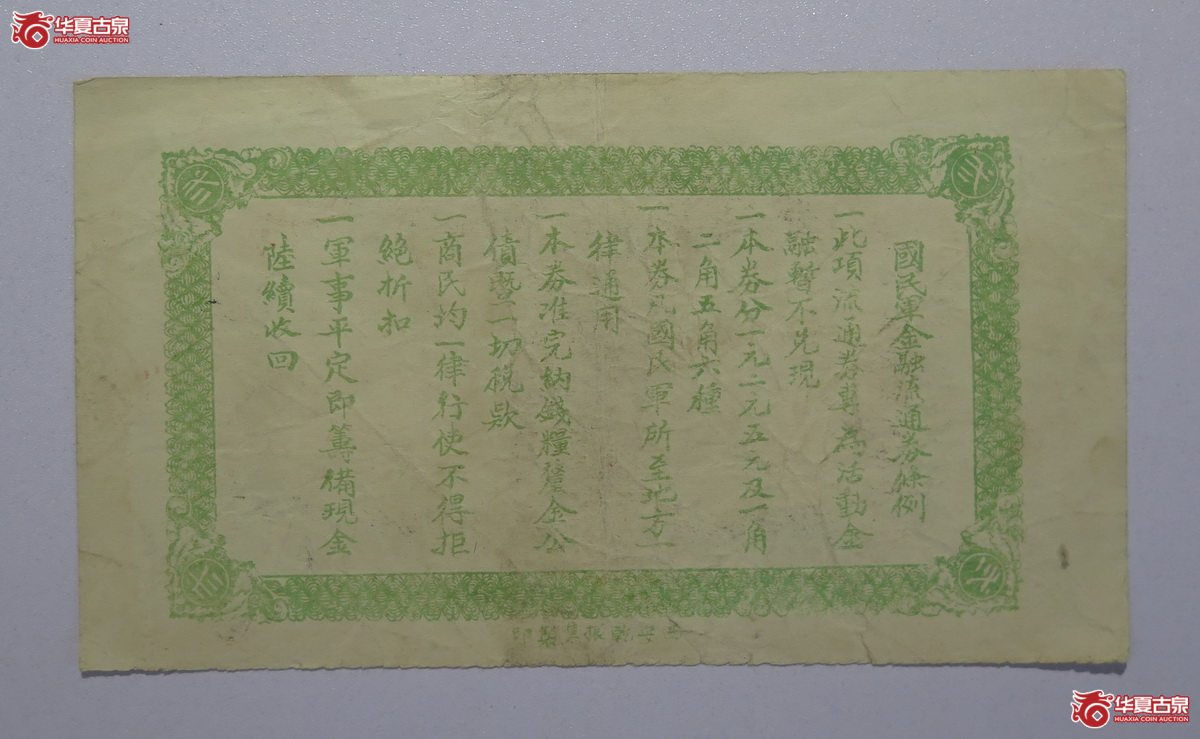 华夏古泉
HUAXIA COIN AUCTION
國民軍金融流通券條例
一此項流通券專為活動金
融暫不兌現
一本券分一元二元五元及一角
二角五角六種
一本券凡國民軍所至地方一
律通用
一本券准完納錢糧釐金公
債暨一切稅款
一商民均一律行使不得拒
絕折扣
一軍事平定即籌備現金
陸續收回
华夏古泉
HUAXIA COIN AUCTION